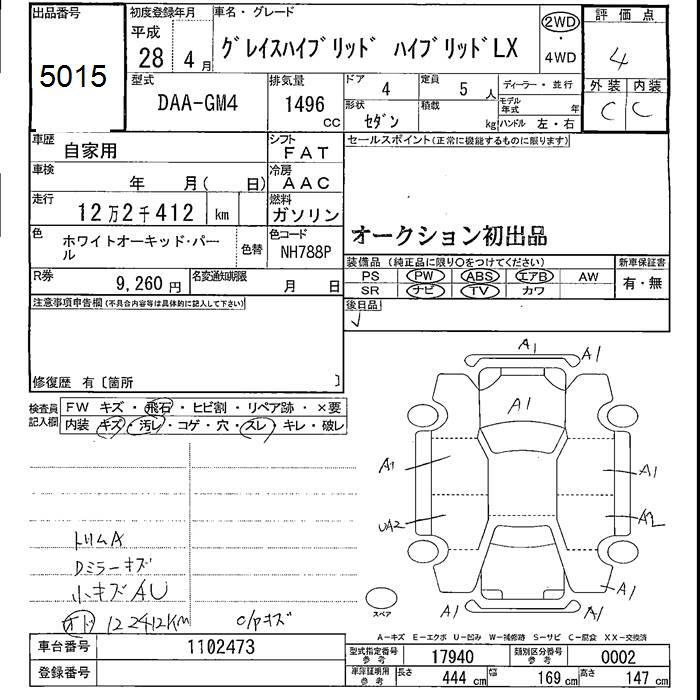 出品番号 初度登録年月 車名・グレード 評価点
5015 平成 28 4月 グレイスハイブリッド ハイブリッドLX 2WD・4WD 4
型式 排気量 ドア 4 定員 5人 ディーラー・並行 外装 内装
DAA-GM4 1496cc 形状 セダン 積載 kg モデル年式 年 ハンドル 左・右 C C
車歴 自家用 シフト FAT セールスポイント(正常に機能するものに限ります)
車検 年 月( 日) 冷房 AAC
走行 12万2千412 km 燃料 ガソリン
オークション初出品
色 ホワイトオーキッド・パール 色替 色コード NH788P
装備品(純正品に限り〇をつけてください) 新車保証書
PS PW ABS エアB AW 有・無
SR ナビ TV カワ
R券 9,260円 名変通知期限 月 日
後日品
注意事項申告欄(不具合内容等は具体的に記入して下さい)
修復歴 有〔箇所 〕
検査員記入欄 FW キズ・飛石・ヒビ割・リペア跡・×要
内装 キズ・汚レ・コゲ・穴・スレ・キレ・破レ
A1 A1
A1
A1 A1
UA2 A2
A1
A1 A1
スペア
トリムA
Dミラーキズ
小キズAU
オド 122412KM C/Pキズ
A-キズ E-エクボ U-凹み W-補修跡 S-サビ C-腐食 XX-交換済
車台番号 1102473 型式指定番号 参考 17940 類別区分番号 参考 0002
登録番号 車年証明用 参考 長さ 444cm 幅 169cm 高さ 147cm